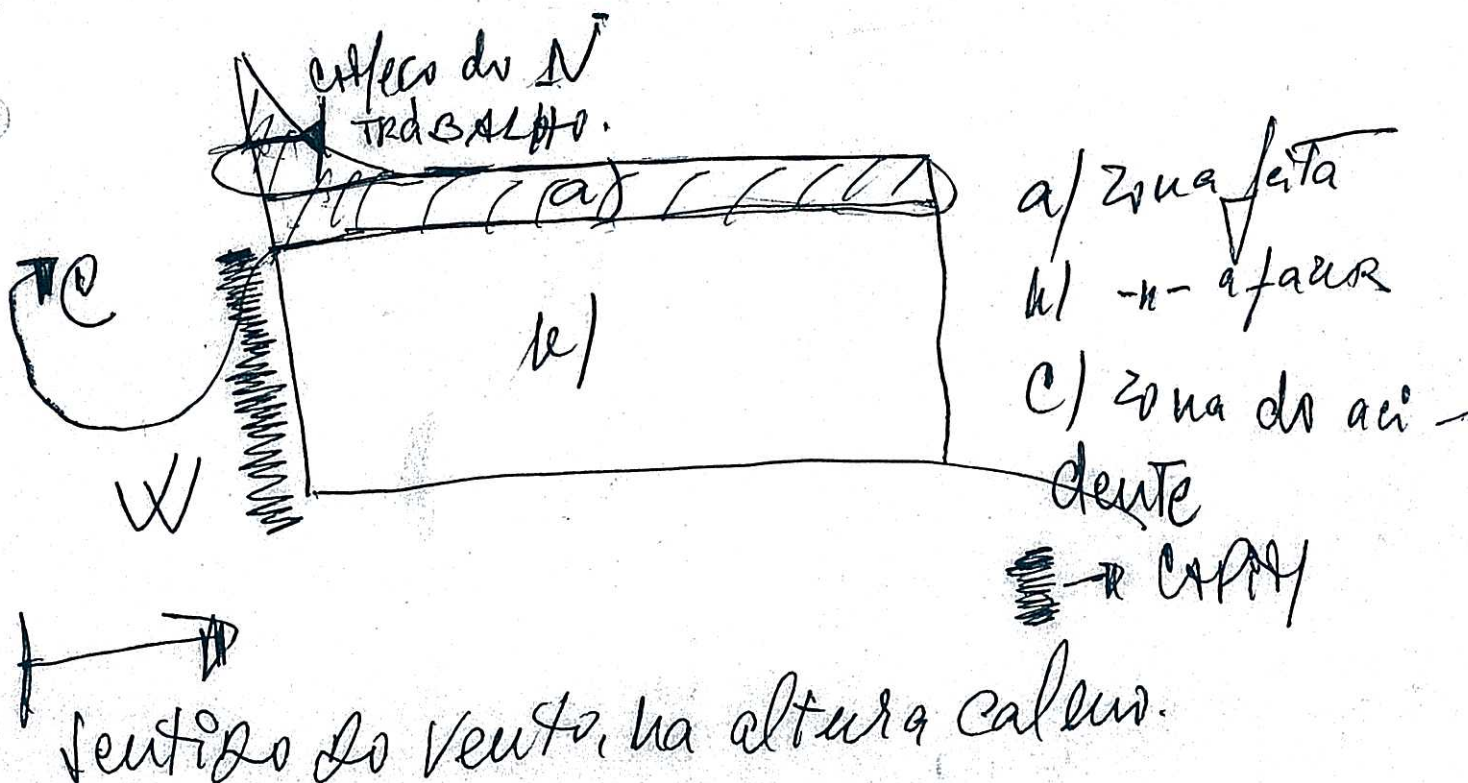 começo do N
TRABALHO.
a)
a/ zona feita
b/ -"- a fazer
C/ zona do aci-
dente
C
b/
W
→ CAPIM
Sentido do vento, na altura calmo.